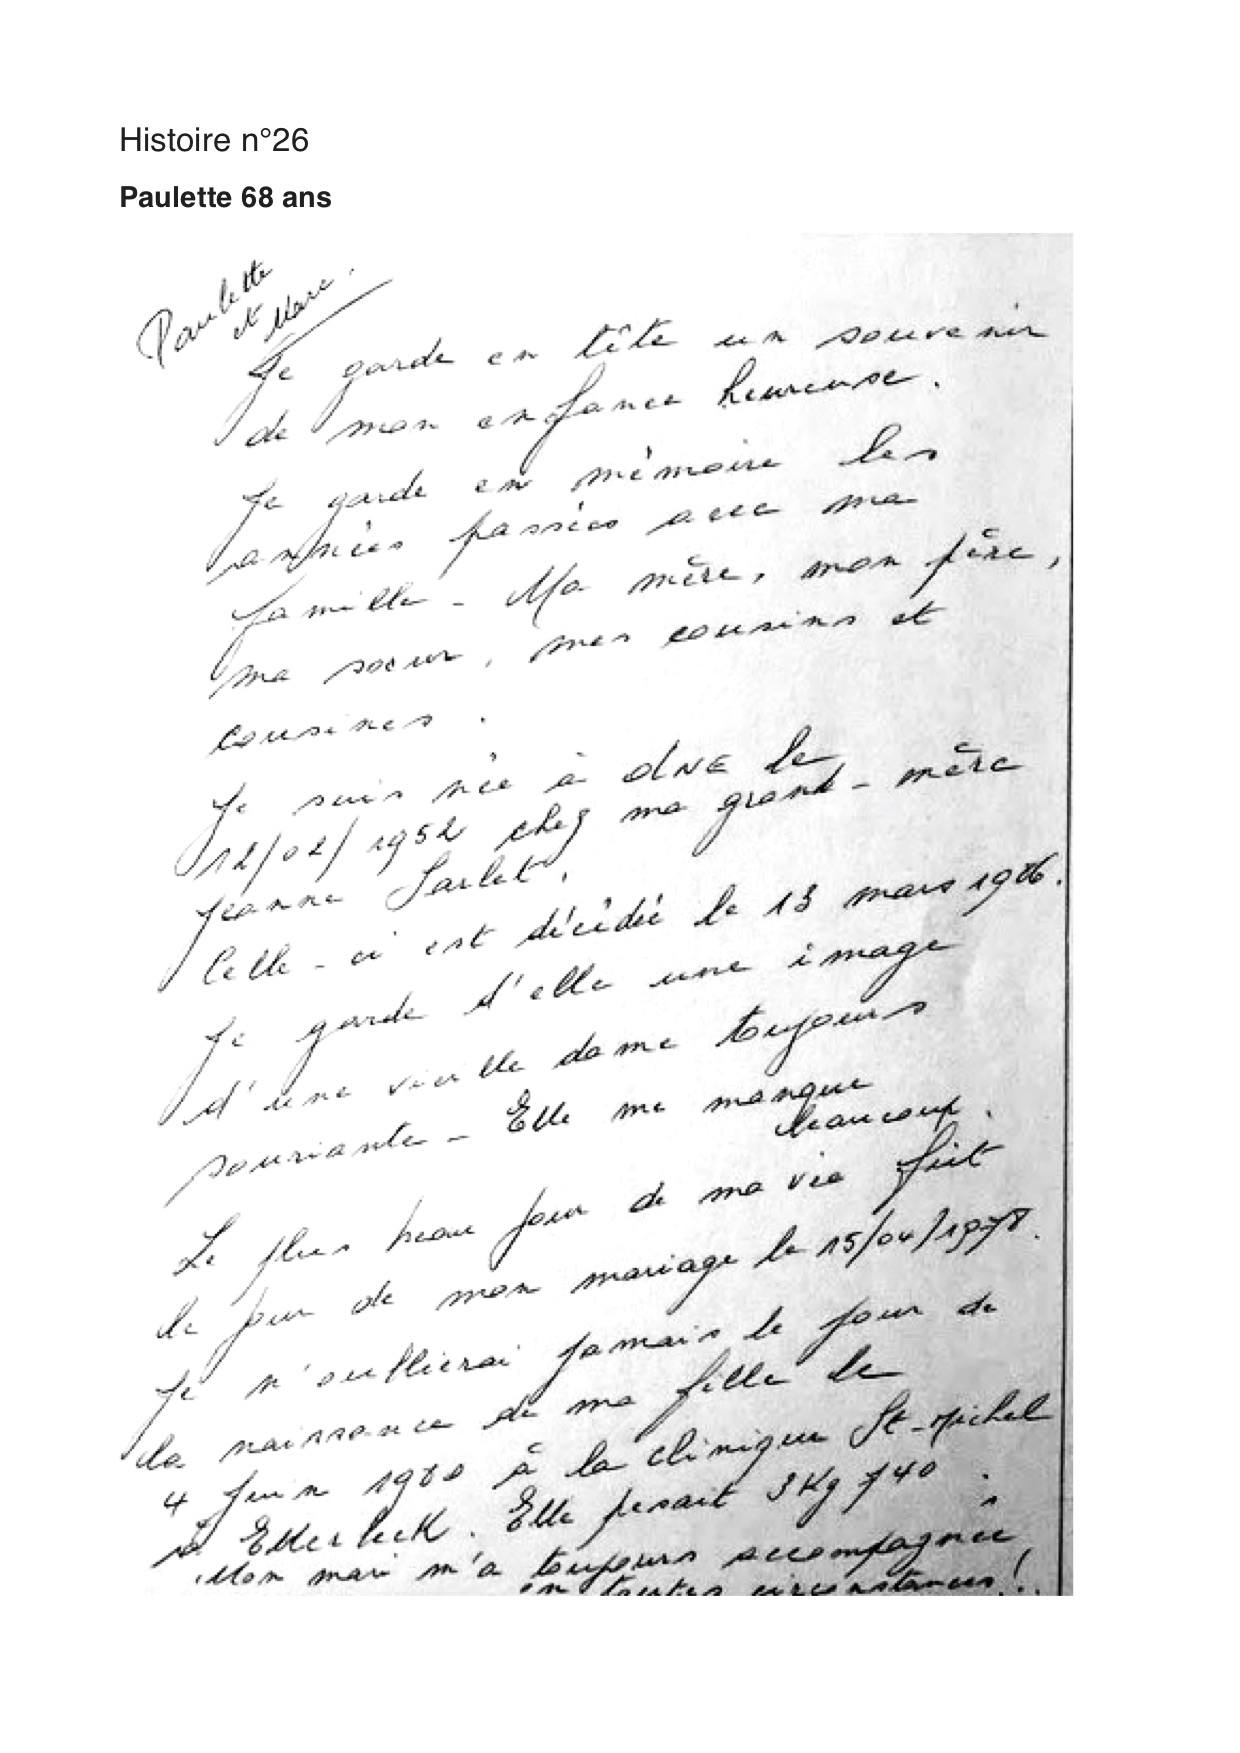 Histoire n°26
Paulette 68 ans
Paulette
et Marc.
Je garde en tête un souvenir
de mon enfance heureuse.
Je garde en mémoire les
années passées avec ma
famille - Ma mère, mon père,
ma soeur, mes cousins et
cousines.
Je suis née à ONE le
12/02/1952 chez ma grand-mère
Jeanne Sarlet.
Celle-ci est décédée le 13 mars 1986.
Je garde d'elle une image
d'une vieille dame toujours
souriante - Elle me manque
beaucoup.
Le plus beau jour de ma vie fût
le jour de mon mariage le 15/04/1978.
Je n'oublierai jamais le jour de
la naissance de ma fille le
4 juin 1980 à la clinique St-Michel
à Etterbeek. Elle pesait 3Kg 740.
Mon mari m'a toujours accompagnée
en toutes circonstances!